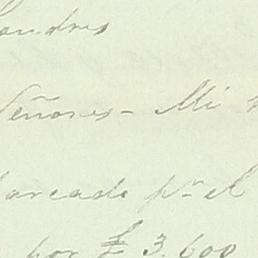 Londres
Señores - Mi
marcada pr. el
por £ 3,600